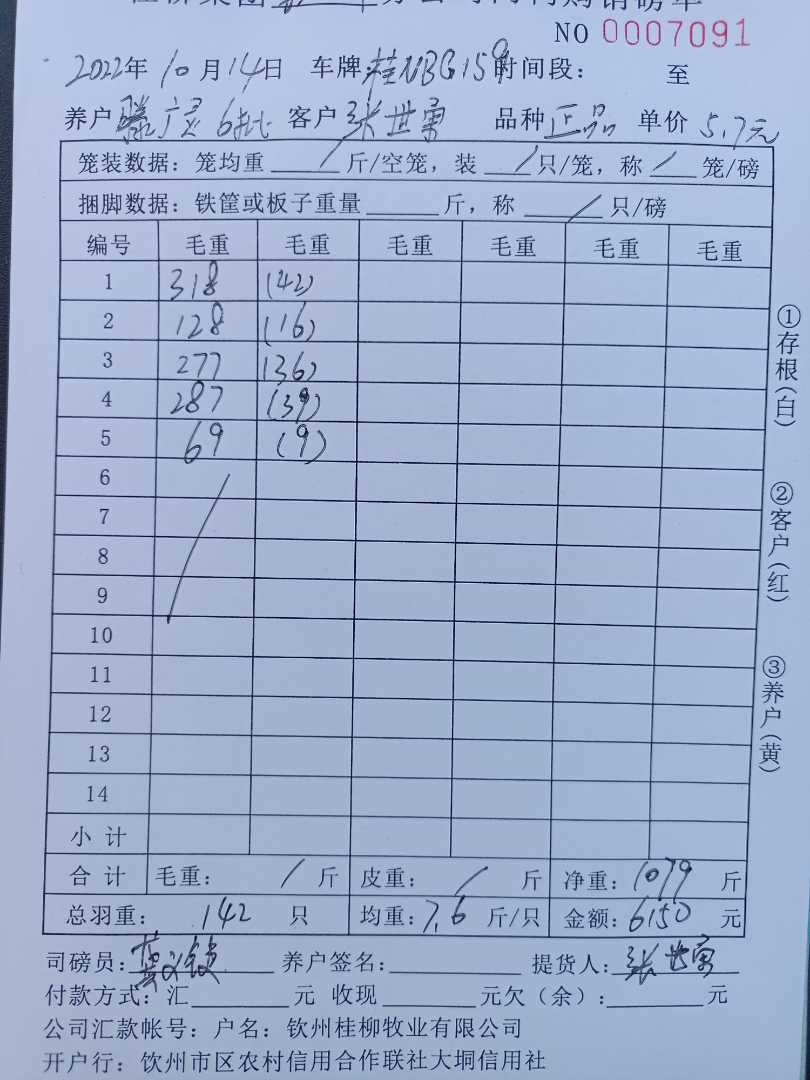 NO 0007091
2022年 10月14日 车牌:桂NBG159 时间段: 至
养户 广灵 6批 客户 张世勇 品种 正品 单价 5.7元
笼装数据:笼均重 / 斤/空笼,装 / 只/笼,称 / 笼/磅
捆脚数据:铁筐或板子重量 斤,称 / 只/磅
编号 毛重 毛重 毛重 毛重 毛重 毛重
1 318 (42)
2 128 (16)
3 277 (36)
4 287 (39)
5 69 (9)
6
7
8
9
10
11
12
13
14
小计
合计 毛重: / 斤 皮重: / 斤 净重: 1079 斤
总羽重: 142 只 均重: 7.6 斤/只 金额: 6150 元
司磅员: 养户签名: 提货人: 张世勇
付款方式:汇 元 收现 元欠(余): 元
公司汇款帐号:户名:钦州桂柳牧业有限公司
开户行:钦州市区农村信用合作联社大垌信用社
①存根(白)
②客户(红)
③养户(黄)